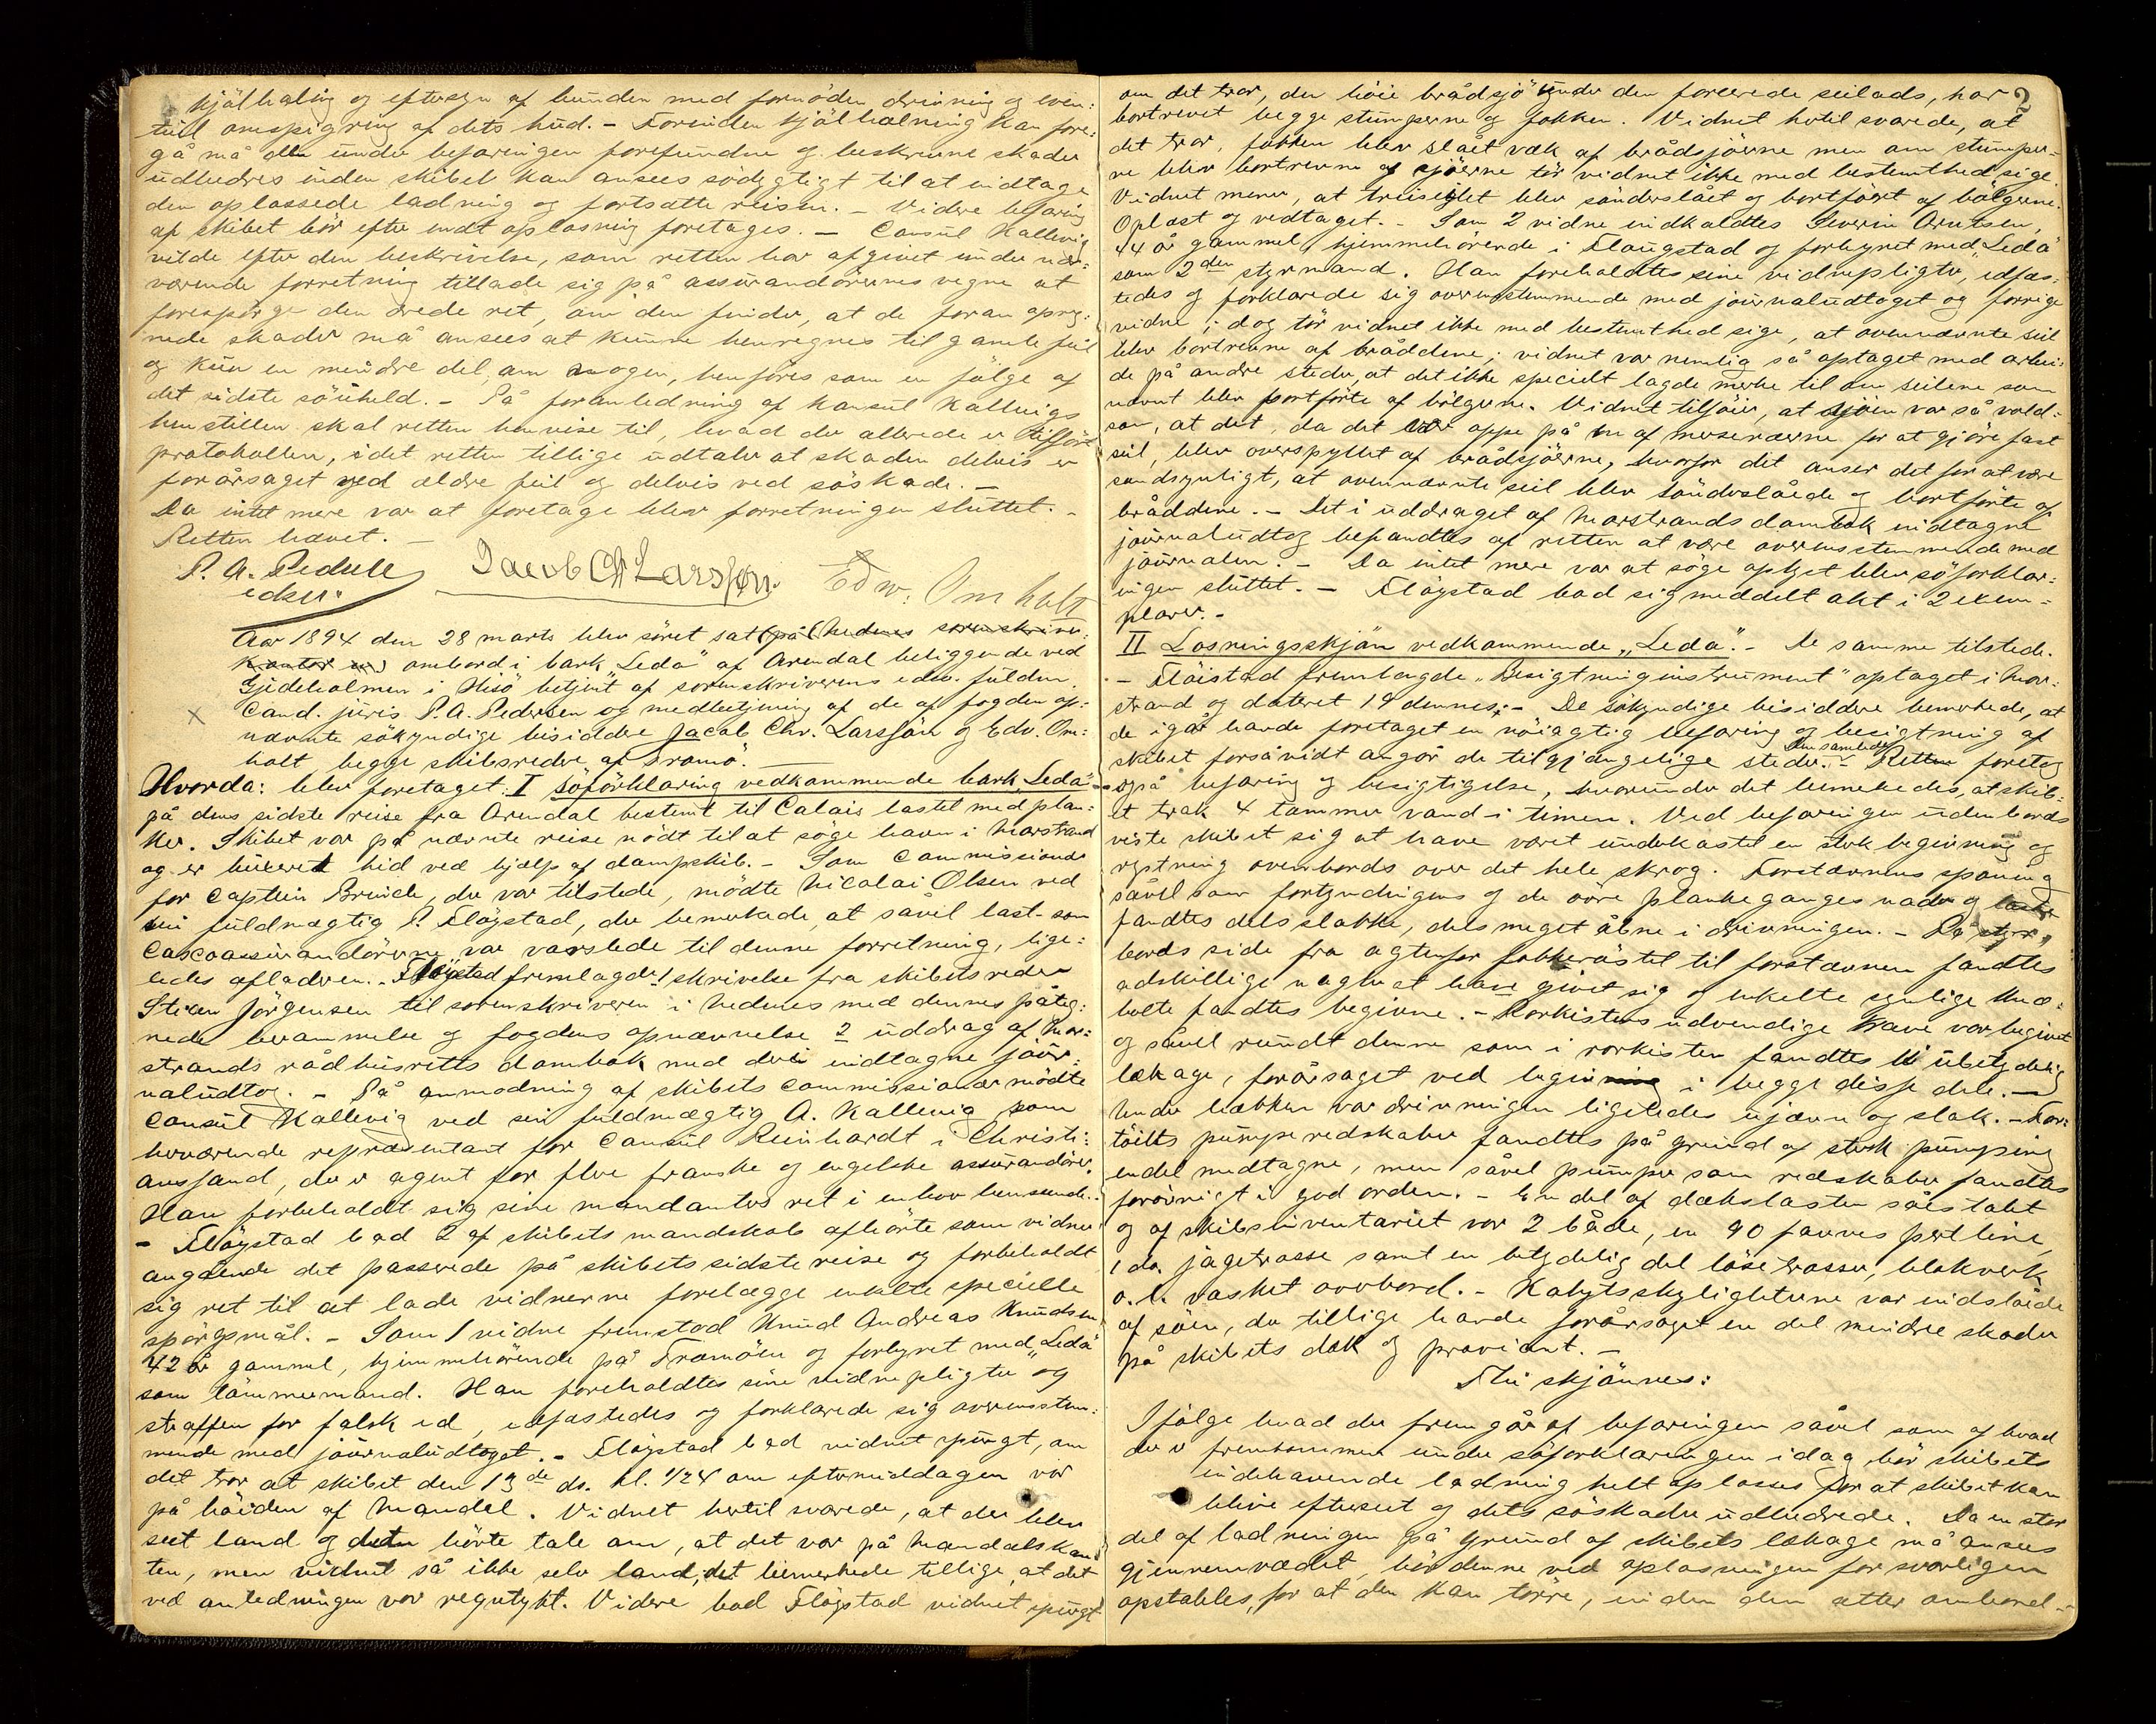 kjölhaling og eftersyn af bunden med fornöden drivning og even-
tuel omspigring af dets hud. – Forinden kjölhalning kan fore-
gå må de under besaringen forefundne og beskrevne skader
udbedres inden skibet kan ansees södygtigt til at indtage
den oplossede ladning og fortsætte reisen. – Videre besaring
af skibet bör efter endt oplosning foretages. – Consul Kallevig
vilde efter den beskrivelse, som retten har afgivet under nær-
værende forretning tillade sig på assurandörernes vegne at
forespörge den ærede ret, om den finder, at de foran opreg-
nede skader må ansees at kunne henregnes til gamle feil
og kun en mindre del, om nogen, henföres som en fölge af
det sidste söuheld. – På foranledning af Konsul Kallevigs
henstillen skal retten henvise til, hvad der allerede er tilfört
protokollen, idet retten tillige udtaler at skaden delvis er
forårsaget ved ældre feil og delvis ved söskade. –
Da intet mere var at foretage blev forretningen sluttet. –
Retten hævet. –
P. A. Pedersen
edsv:
Jacob Chr Larssen.
Edw: Omholt
Aar 1894 den 28 marts blev söret sat (på Nedenes sorenskriver-
kontor ved) ombord i bark "Leda" af Arendal beliggende ved
Gjedeholmen i Hisö betjent af sorenskriverens edsv. fuldm.
Cand. juris P. A. Pedersen og medbetjening af de af fogden op-
nævnte sökyndige bisiddere Jacob Chr. Larssön og Edv. Om-
holt, begge skibsredre af Tromö.
Hvorda: blev foretaget I söforklaring vedkommende bark "Leda"
på dens sidste reise fra Arendal bestemt til Calais lastet med plan-
ker. Skibet var på nævnte reise nödt til at söge havn i Marstrand
og er buxeret hid ved hjælp af dampskib. – Som Commissionær
for Captein Brinch, der var tilstede, mödte Nicolai Olsen ved
sin fuldmægtig P. Flögstad, der bemerkede, at såvel last- som
Cascoassurandörerne var varslede til denne forretning, lige-
ledes afladeren. – Flögstad fremlagde 1 skrivelse fra skibets reder
Steen Jörgensen til sorenskriveren i Nedenes med dennes påteg-
nede berammelse og fogdens opnævnelse 2 uddrag af Mar-
strands rådhusretts dombok med deri indtagne jour-
naludtog. – På anmodning af skibets Commissionær mödte
Consul Kallevig ved sin fuldmægtig A. Kallevig som
herværende repræsentant for Consul Reinhardt i Christi-
anssand, der er agent for flere franske og engelske assurandörer.
Han forbeholdt sig sine mandanters ret i enhver henseende.
– Flögstad bad 2 af skibets mandskab afhörte som vidner
angående det passerede på skibets sidste reise og forbeholdt
sig ret til at lade vidnerne forelægge enkelte specielle
spörgsmål. – Som 1 vidne fremstod Knud Andreas Knudsen
42 år gammel, hjemmehörende på Tromöen og forhyret med "Leda"
som tömmermand. Han foreholdtes sine vidnepligter og
straffen for falsk ed, edfæstedes og forklarede sig overensstem-
mende med journaludtoget. – Flögstad bad vidnet spurgt, om
det tror at skibet den 13de ds. kl. 1/2 4 om eftermiddagen var
på höiden af Mandal. Vidnet hertil svarede, at der blev
seet land og hörte tale om, at det var på Mandalskan-
ten, men vidnet så ikke selv land; det bemerkede tillige, at det
ved anledningen var regntykt. Videre bad Flögstad vidnet spurgt
2
om det tror, den höie brådsjö under den forcerede seilads, har
bortrevet begge stumperne og fokken. Vidnet hertil svarede, at
det tror, fokken blev slået væk af brådsjöerne men om stumper-
ne blev bortrevne af sjöerne tör vidnet ikke med bestemthed sige.
Vidnet mener, at treiseilet blev sönderslået og bortföret af bölgerne.
Oplæst og vedtaget. – Som 2 vidne indkaldtes Severin Arntsen,
44 år gammel, hjemmehörende i Flougstad og forhyret med "Leda"
som 2den styrmand. Han foreholdtes sine vidnepligter, edfæs-
tedes og forklarede sig overensstemmende med journaludtoget og forrige
vidne; dog tör vidnet ikke med bestemthed sige, at ovennævnte seil
blev bortrevne af bråddene; vidnet var nemlig så optaget med arbei-
de på andre steder, at det ikke specielt lagde merke til om seilene som
nævnt blev bortförte af bölgerne. Vidnet tilföier, at sjöen var så vold-
som, at det, da det var oppe på en af merseræerne for at gjöre fast
seil, blev overspyllet af brådsjöerne, hvorfor det anser det for at være
sandsynligt, at ovennævnte seil blev sönderslåede og bortförte af
bråddene. – Det i uddraget af Marstrands dombok indtagne
journaludtog befandtes af retten at være overensstemmende med
journalen. – Da intet mere var at söge oplyst blev söforklar-
ingen sluttet. – Flögstad bad sig meddelt akt i 2 exem-
plarer. –
II Losningsskjön vedkommende "Leda". – De samme tilstede.
– Flöistad fremlagde "Besigtninginstrument" optaget i Mar-
strand og dateret 19 dennes. – De sökyndige bisiddere bemerkede, at
de igår havde foretaget en nöiagtig besaring og besigtning af
skibet forsåvidt angår de tilgjængelige steder. – Den samlede Retten foretog
også besaring og besigtigelse, hvorunder det bemerkedes, at skib-
et trak 4 tommer vand i timen. Ved besaringen udenbords
viste skibet sig at have været underkastet en sterk begivning og
rystning ovenbords over det hele skrog. Forstævnens spöning
såvel som fortyndningens og de övre plankeganges nader og
fandtes dels slakke, dels meget åbne i drivningen. – På styr-
bords side fra agtenfor fokkeröstet til forstævnen fandtes
adskillige nagler at have givet sig og enkelte synlige knæ-
bolte fandtes begivne. – Rorkistens udvendige krave var begivet
og såvel rundt denne som i rorkisten fandtes ei ubetydelig
lækage, forårsaget ved begivning i begge disse dele. –
Under hækken var drivningen ligeledes ujævn og slak. – For-
töiets pumperedskaber fandtes på grund af sterk pumping
endel medtagne, men såvel pumper som redskaber fandtes
forövrigt i god orden. – En del af dækslasten såes tabt
og af skibsinventariet var 2 både, en 90 favnes pertline,
1 do. jagetrosse samt en betydelig del löse trosser, blokverk
o.l. vasket overbord. – Kahytsskylighterne var indslåede
af söen, der tillige havde forårsaget en del mindre skader
på skibets dæk og proviant. –
Thi skjönnes:
Ifölge hvad der fremgår af besaringen såvel som af hvad
der er fremkommen under söforklaringen idag, bör skibets
indehavende ladning helt oplosses for at skibet kan
blive efterseet og dets söskader udbedrede. Da en stor
del af ladningen på grund af skibets lækage må ansees
gjennemvædet, bör denne ved oplosningen forsvarligen
opstables, for at den kan törre, inden den atter ombord-